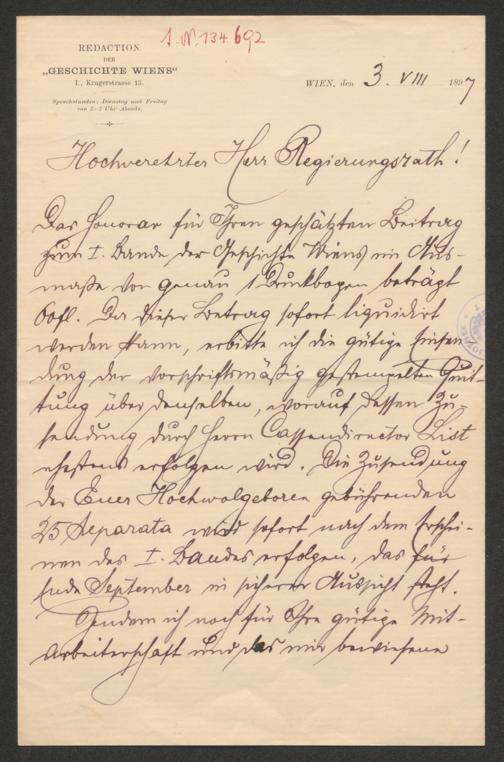 I. N. 134692
REDACTION
DER
„GESCHICHTE WIENS“
I., Krugerstrasse 13.
Sprechstunden: Dienstag und Freitag
von 5–7 Uhr Abends.
WIEN, den 3. VIII 1897
Hochverehrter Herr Regierungsrath!
Das Honorar für Ihren geschätzten Beitrag
zum I. Bande der Geschichte Wiens im Aus-
maße von genau 1 Druckbogen beträgt
60 fl. Da dieser Betrag sofort liquidirt
werden kann, erbitte ich die gütige Einsen
dung der vorschriftsmäßig gestempelten Quit-
tung über denselben, worauf dessen Zu-
sendung durch Herrn Cassendirector List
ehestens erfolgen wird. Die Zusendung
der Euer Hochwolgeboren gebührenden
25 Separata wird sofort nach dem Erschei-
nen des I. Bandes erfolgen, das für
Ende September in sicherer Aussicht steht.
Indem ich noch für Ihre gütige Mit-
arbeiterschaft und das mir bewiesene